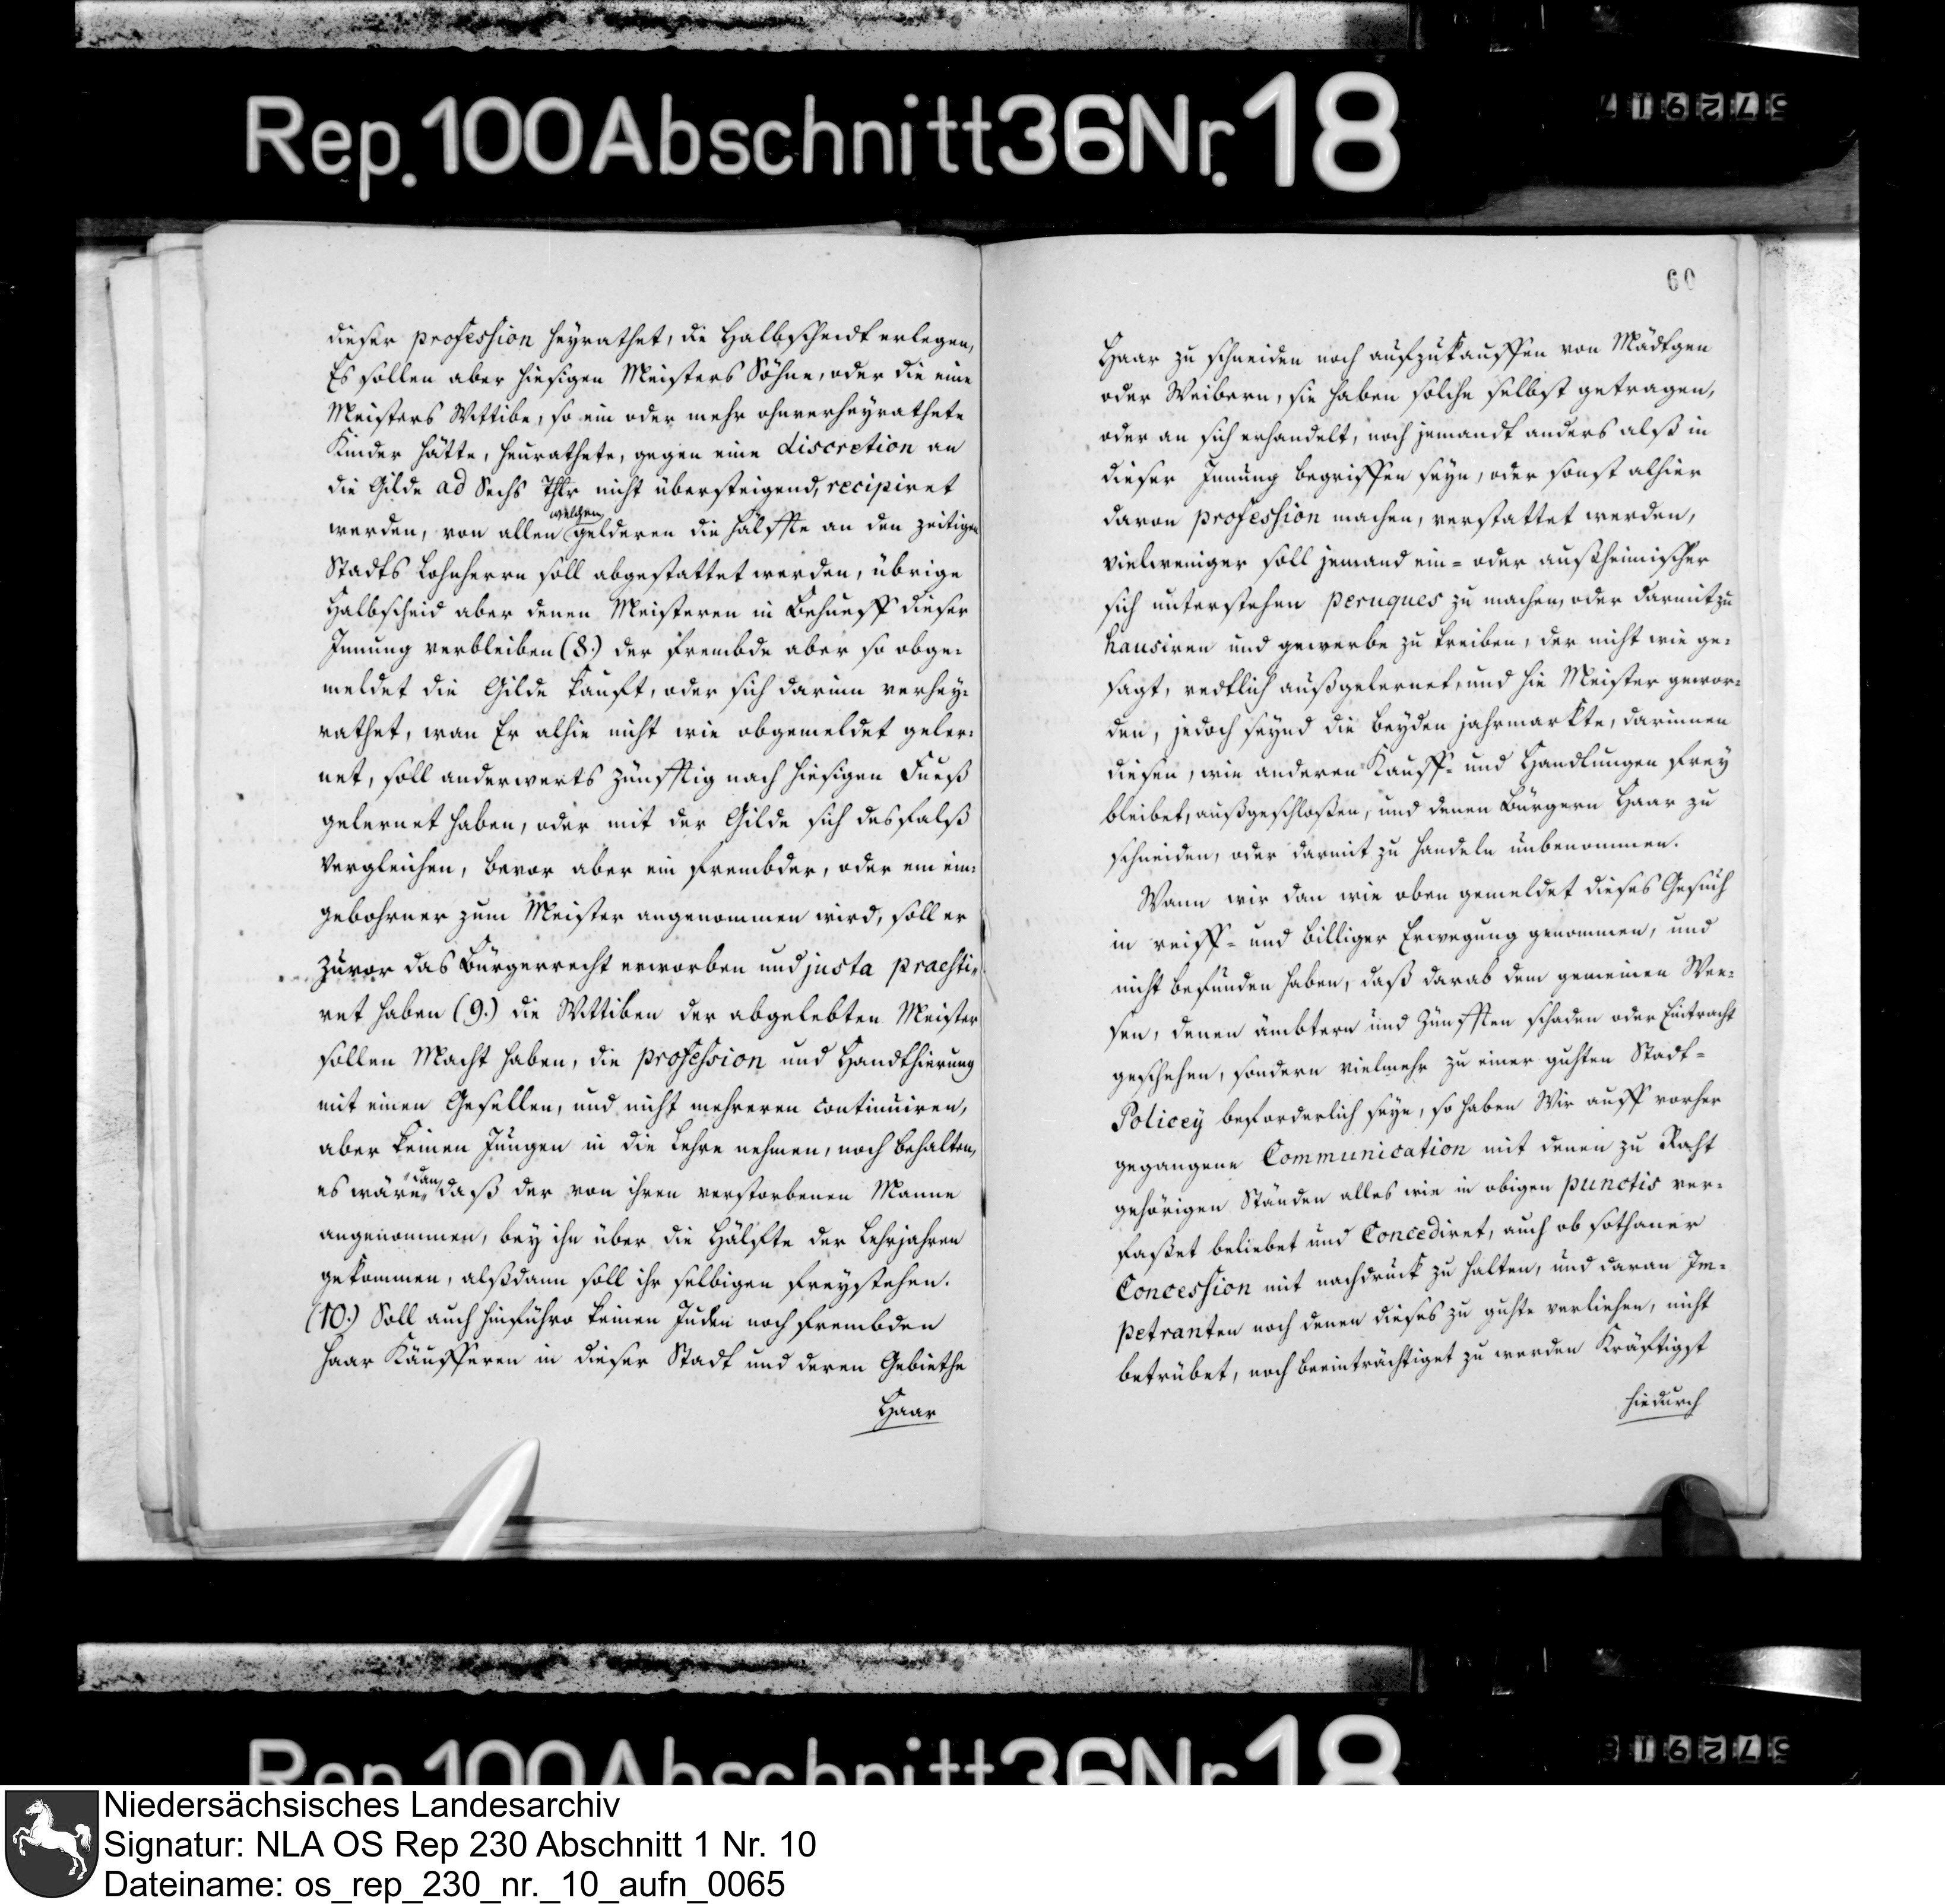 Rep. 100 Abschnitt 36 Nr. 18
dieser profession heyrathet, die Halbscheidt erlegen,
Es sollen aber hiesigen Meisters Söhne, oder die eine
Meisters Wittibe, so ein oder mehr ohnverheyrathete
Kinder hätte, heurathete, gegen eine discretion an
die Gilde ad Sechs Thlr nicht übersteigend, recipiret
werden, von allen welchen gelderen die hälffte an den zeitigen
Stadts Lohnherrn soll abgestattet werden, übrige
Halbscheid aber denen Meisteren in Behueff dieser
Innung verbleiben (8.) der frembde aber so obge-
meldet die Gilde kauft, oder sich darinn verhey-
rathet, wan Er alhie nicht wie obgemeldet geler-
net, soll anderwerts zünfftig nach hiesigen Fueß
gelernet haben, oder mit der Gilde sich desfalß
vergleichen, bevor aber ein frembder, oder ein ein-
gebohrner zum Meister angenommen wird, soll er
zuvor das Bürgerrecht erworben und justa praesti-
ret haben (9.) die Wittiben der abgelebten Meister
sollen Macht haben, die profession und Handthierung
mit einen Gesellen, und nicht mehreren continuiren,
aber keinen Jungen in die Lehre nehmen, noch behalten,
es wäre dan, daß der von ihren verstorbenen Manne
angenommen, bey ihn über die Hälfte der Lehrjahren
gekommen, alßdann soll ihr selbigen freystehen.
(10.) Soll auch hinführo keinen Juden noch frembden
Haar Käufferen in dieser Stadt und deren Gebiethe
Haar
60
Haar zu schneiden noch aufzukauffen von Mädtgen
oder Weibern, sie haben solche selbst getragen,
oder an sich erhandelt, noch jemandt anders alß in
dieser Innung begriffen seyn, oder sonst alhier
davon profession machen, verstattet werden,
vielweniger soll jemand ein- oder außheimischer
sich unterstehen peruques zu machen, oder darmit zu
hausiren und gewerbe zu treiben, der nicht wie ge-
sagt, redtlich außgelernet, und hie Meister gewor-
den, jedoch seynd die beyden jahrmarkte, darinnen
diesen, wie anderen Kauff- und Handlungen frey
bleibet, außgeschloßen, und denen Bürgern Haar zu
schneiden, oder darmit zu handeln unbenommen.
Wann wir dan wie oben gemeldet dieses Gesuch
in reiff- und billiger Erwegung genommen, und
nicht befunden haben, daß darab dem gemeinen Wee-
sen, denen ämbtern und Zünfften schaden oder Eintracht
geschehen, sondern vielmehr zu einer guhten Stadt-
Policey beforderlich seye, so haben Wir auff vorher
gegangene Communication mit denen zu Raht
gehörigen Ständen alles wie in obigen punctis ver-
faßet beliebet und Concediret, auch ob sothaner
Concession mit nachdruck zu halten, und daran Im-
petranten noch denen dieses zu guhte verliehen, nicht
betrübet, noch beeinträchtiget zu werden Kräftigst
hiedurch
Rep. 100 Abschnitt 36 Nr. 18
Niedersächsisches Landesarchiv
Signatur: NLA OS Rep 230 Abschnitt 1 Nr. 10
Dateiname: os_rep_230_nr._10_aufn_0065